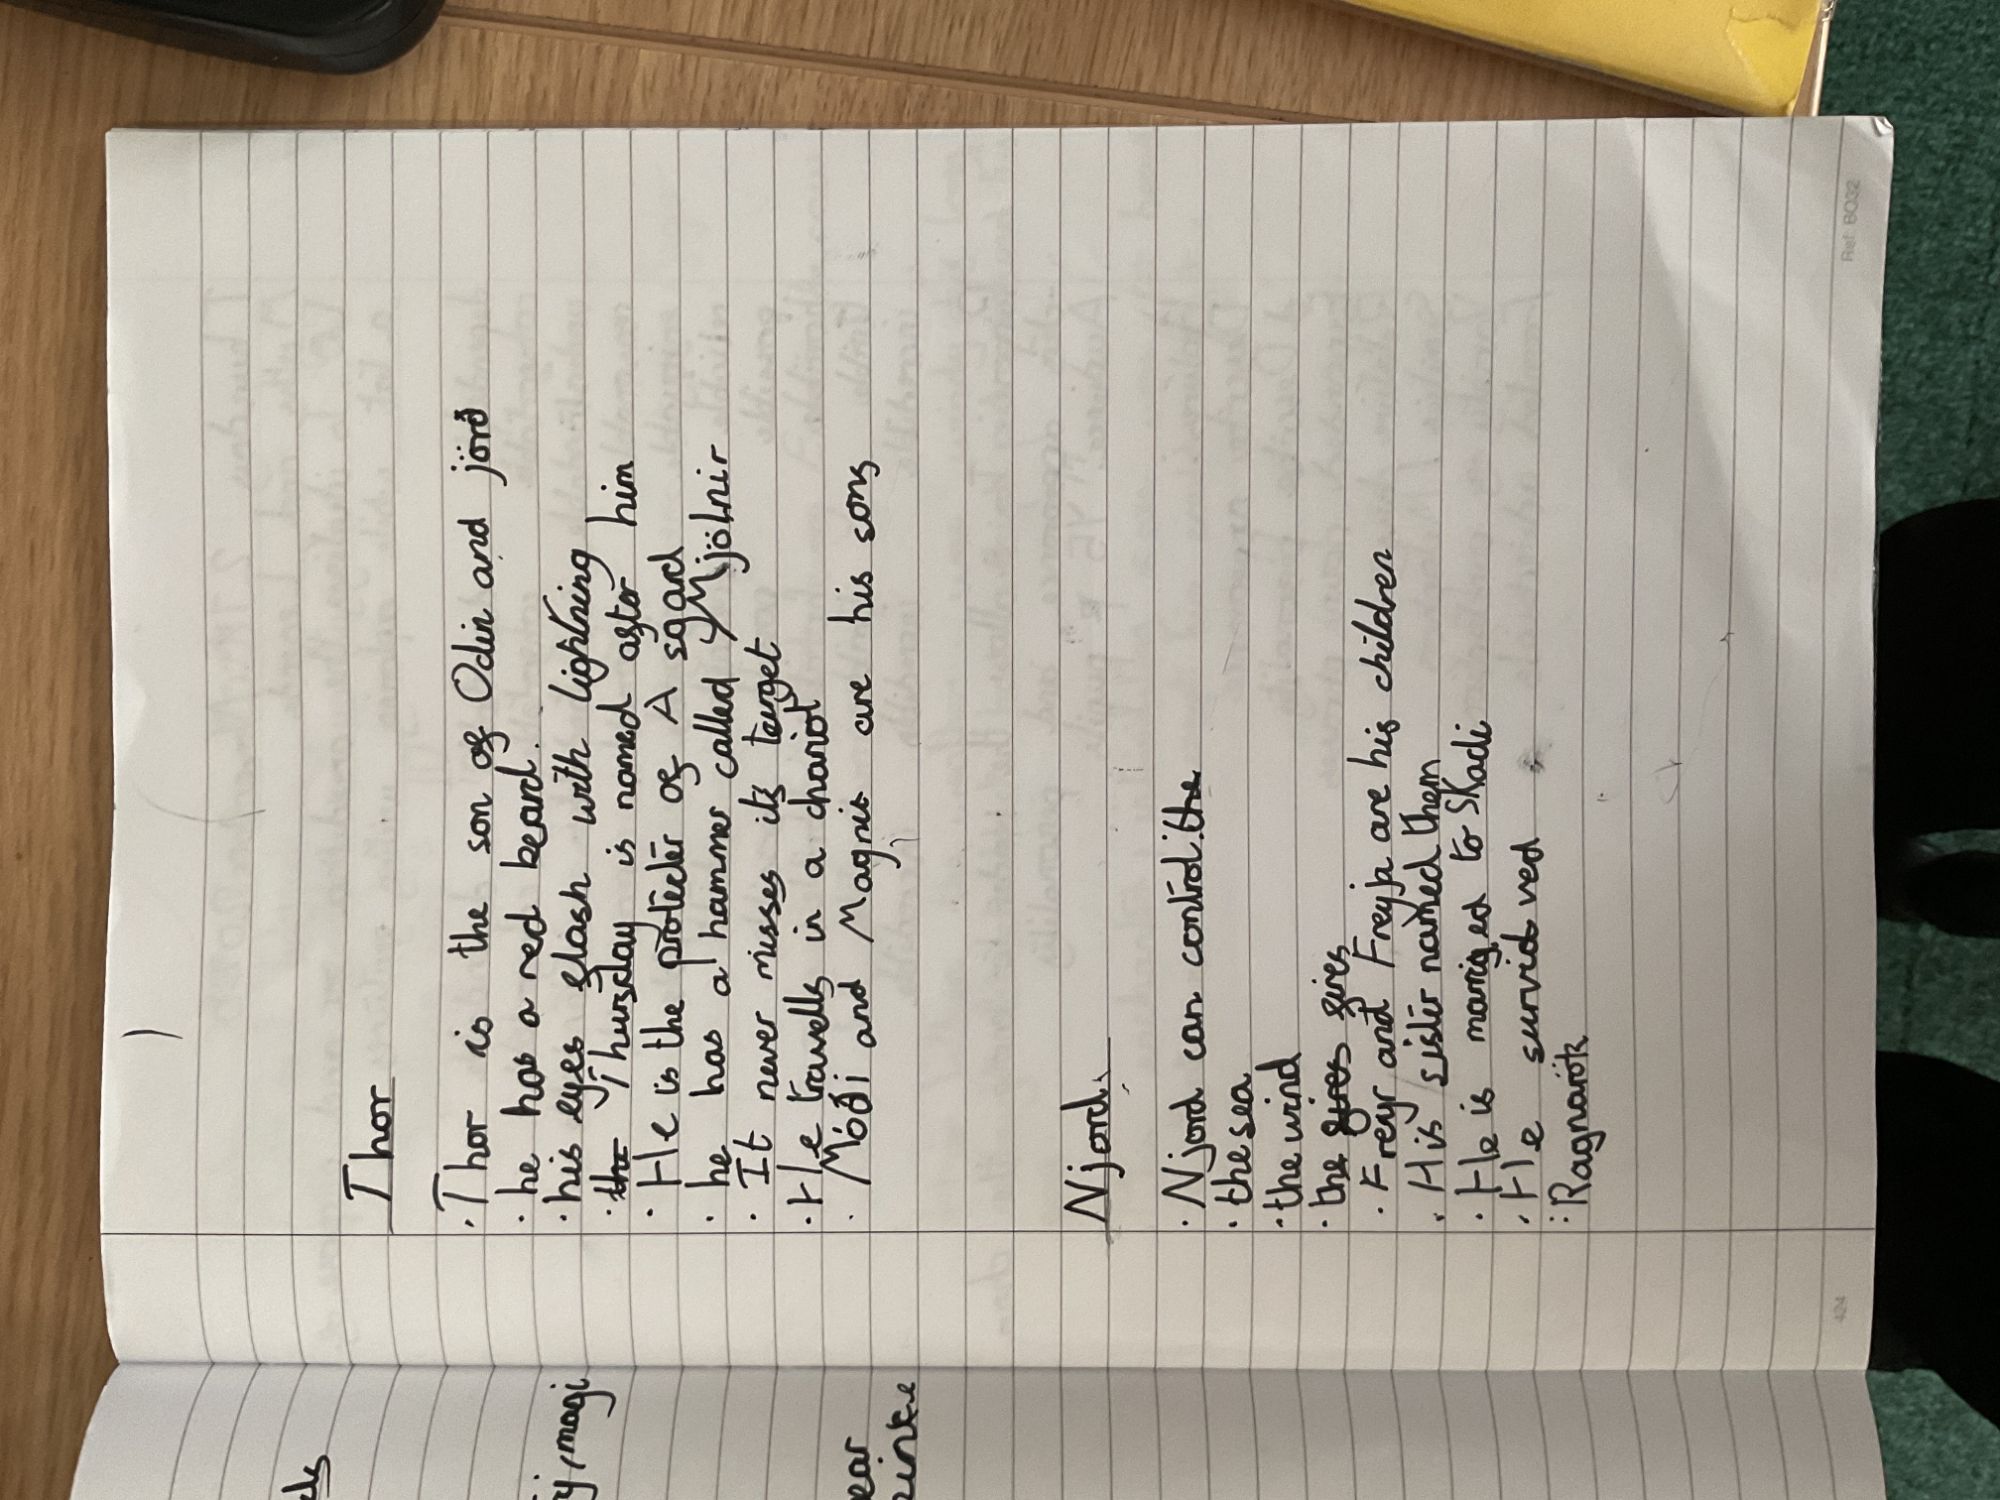 Thor
· Thor is the son of Odin and jörð
· he has a red beard.
· his eyes flash with lightning
· the Thursday is named aftor him
· He is the protecter of A sgard
· he has a hammer called Mjölnir
· It never misses its target
· He travells in a chariot
· Móði and Magni are his sons
Njord
· Njord can control: the
· the sea
· the wind
· the fires fires
· Freyr and Freyja are his children
· His sister named them
· He is marrig ed to Skadi
· He survid ved
: Ragnarök
y, magi
ear
Ref BO32
424